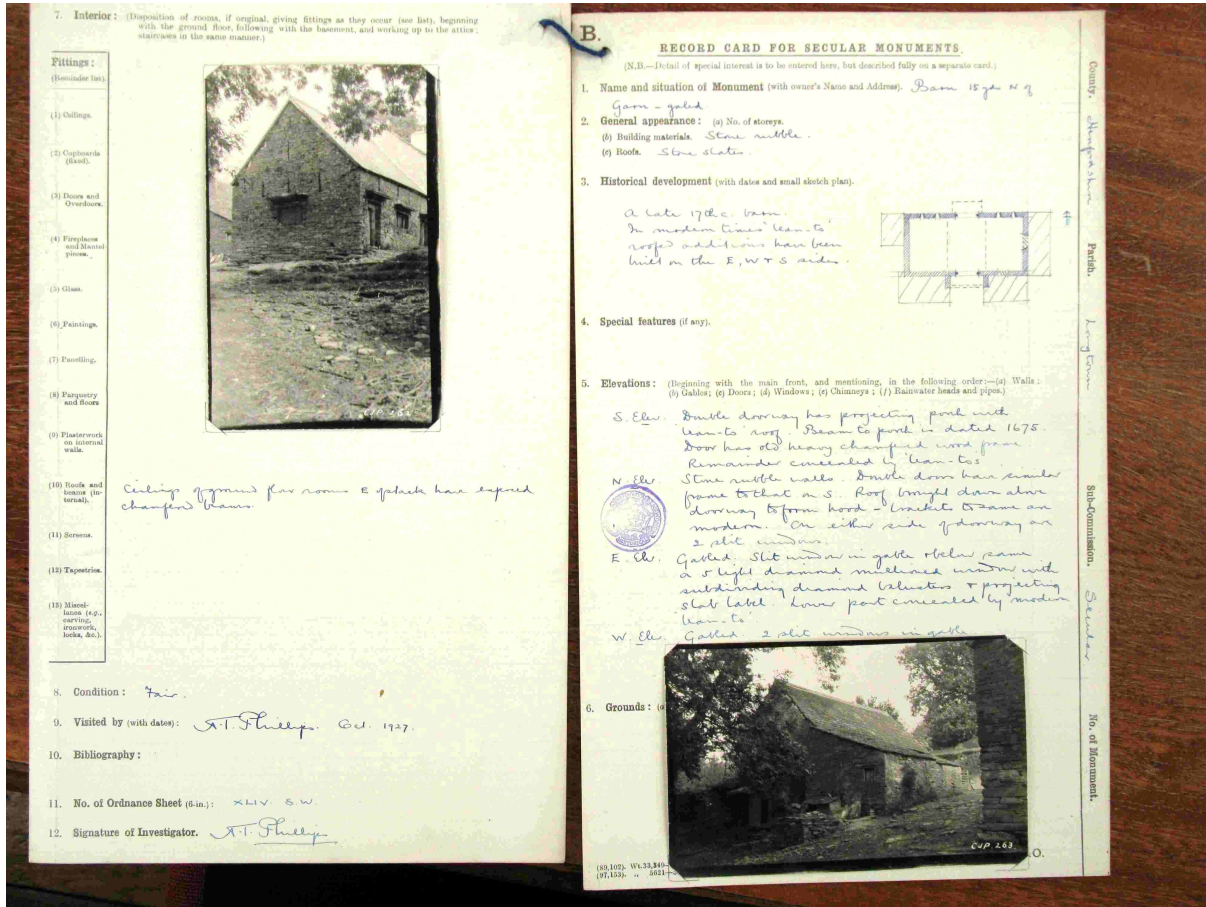 7. Interior: (Disposition of rooms, if original, giving fittings as they occur (see list), beginning
with the ground floor, following with the basement, and working up to the attics;
staircases in the same manner.)
Fittings:
(Reminder list).
(1) Ceilings.
(2) Cupboards
(fixed).
(3) Doors and
Overdoors.
(4) Fireplaces
and Mantel
pieces.
(5) Glass.
(6) Paintings.
(7) Panelling.
(8) Parquetry
and floors
(9) Plasterwork
on internal
walls.
(10) Roofs and
beams (in-
ternal).
(11) Screens.
(12) Tapestries.
(13) Miscel-
lanea (e.g.,
carving,
ironwork,
locks, &c.).
CJP 262
Ceilings of ground floor rooms E of stack have exposed
chamfered beams.
8. Condition: Fair.
9. Visited by (with dates): A.T. Phillips. Oct. 1927.
10. Bibliography:
11. No. of Ordnance Sheet (6-in.): XLIV. S.W.
12. Signature of Investigator. A.T. Phillips
B.
RECORD CARD FOR SECULAR MONUMENTS.
(N.B.—Detail of special interest is to be entered here, but described fully on a separate card.)
1. Name and situation of Monument (with owner's Name and Address). Barn 15 yds N of
Garn-galed
2. General appearance: (a) No. of storeys.
(b) Building materials. Stone rubble.
(c) Roofs. Stone slates.
3. Historical development (with dates and small sketch plan).
A late 17th c. barn.
In modern times 'lean-to'
roofed additions have been
built on the E, W & S sides.
4. Special features (if any).
5. Elevations: (Beginning with the main front, and mentioning, in the following order:—(a) Walls;
(b) Gables; (c) Doors; (d) Windows; (e) Chimneys; (f) Rainwater heads and pipes.)
S. Elev. Double doorway has projecting porch with
'lean-to' roof. Beam to porch is dated 1675.
Door has old heavy chamfered wood frame.
Remainder concealed by 'lean-tos
N. Elev. Stone rubble walls. Double doors have similar
frame to that on S. Roof brought down above
doorway to form hood - brackets to same are
modern. On either side of doorway are
2 slit windows.
E. Elev. Gabled. Slit window in gable & below same
a 5 light diamond mullioned window with
subdividing diamond balusters & projecting
slab label. Lower part concealed by modern
'lean-to'
W. Elev. Gabled 2 slit windows in gable
6. Grounds: (a
CJP 263
(89,102). Wt.33,349—
(97,153). „ 5621—
O.
County. Herefordshire
Parish. Longtown
Sub-Commission. Secular
No. of Monument.